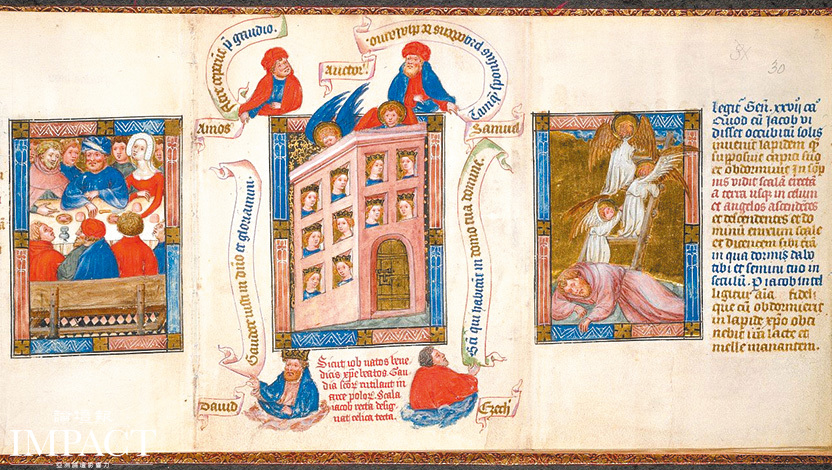 p gaudio.
Auctor:
sponsus
Amos
Samuel
Gaudete iusti in dño et gloriamini.
Bti qui habitant in domo tua domine.
Sicut iob natos bene
dicis xpe beatos. Gau
dia scõr rutilant in
arce polor. Scala
iacob recta desig
nat celica tecta.
David
Ezech
30
legit Gen. xxviij ca
Quod cũ jacob vi
disset occubitũ solis
invenit lapidem q̃
supposuit capiti suo
et obdormivit In som
nis vidit scalã erectã
a terra usq in celum
et angelos ascendẽtes
et descendentes et do
minũ scale
et dicentem sibi trã
in qua dormis dabo
tibi et semini tuo in
seculũ. P jacob intel
ligitur aĩa fidel
que cũ obdormierit
in lapide xpo obti
nebit lacte et
melle manantem.
論壇報
IMPACT